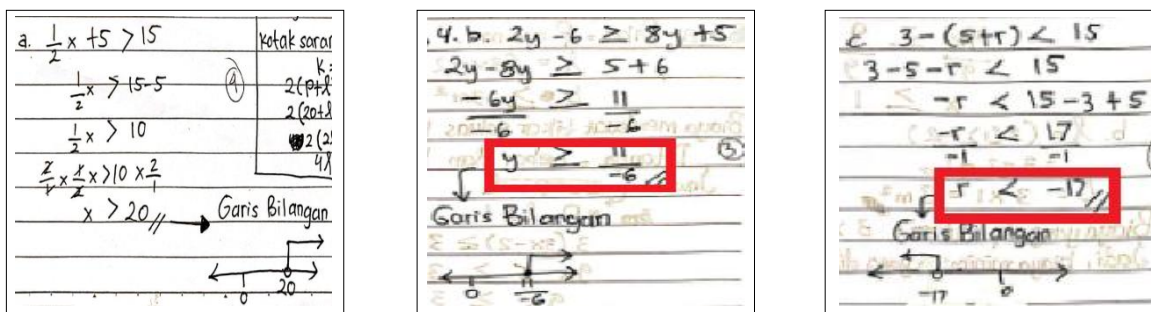 a. 1/2 x + 5 > 15
1/2 x > 15-5
1/2 x > 10
2/1 x 1/2 x > 10 x 2/1
x > 20 //
Garis Bilangan
0 20
4
kotak
K =
2(p+l
2(20+l
4. b. 2y - 6 ≥ 8y + 5
2y - 8y ≥ 5 + 6
-6y/-6 ≥ 11/-6
y ≥ 11/-6 //
3
Garis Bilangan
0 11/-6
c. 3 - (5+r) < 15
3 - 5 - r < 15
-r < 15 - 3 + 5
-r/-1 < 17/-1
r < -17 //
Garis Bilangan
-17 0